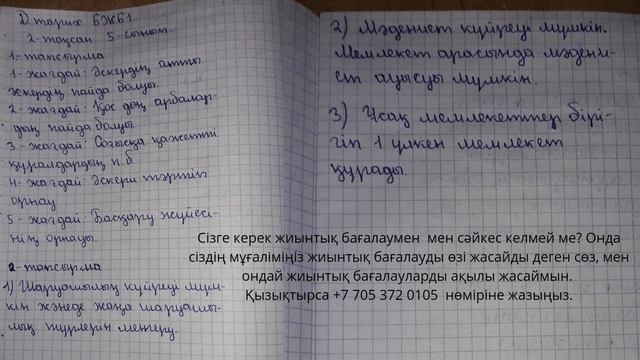 Д.тарих БЖБ1
2-тоқсан 5-сынып.
1-тапсырма
1-жағдай: Әскердің атты
әскердің пайда болуы.
2-жағдай: Қос дөң арбалар-
дың пайда болуы.
3-жағдай: Соғысқа қажетті
құралдардың п.б.
4-жағдай: Әскери тәртіп
орнау
5-жағдай: Басқару жүйесі-
нің орнауы.
2-тапсырма
1) Шаруашылық күйреуі мүм-
кін және жаңа шаруашы-
лық түрлерін меңгеру.
2) Мәдениет күйреуі мүмкін.
Мемлекет арасында мәдени-
ет ауысуы мүмкін.
3) Ұсақ мемлекеттер бірі-
гіп 1 үлкен мемлекет
құрады.
Сізге керек жиынтық бағалаумен мен сәйкес келмей ме? Онда
сіздің мұғаліміңіз жиынтық бағалауды өзі жасайды деген сөз, мен
ондай жиынтық бағалауларды ақылы жасаймын.
Қызықтырса +7 705 372 0105 нөміріне жазыңыз.